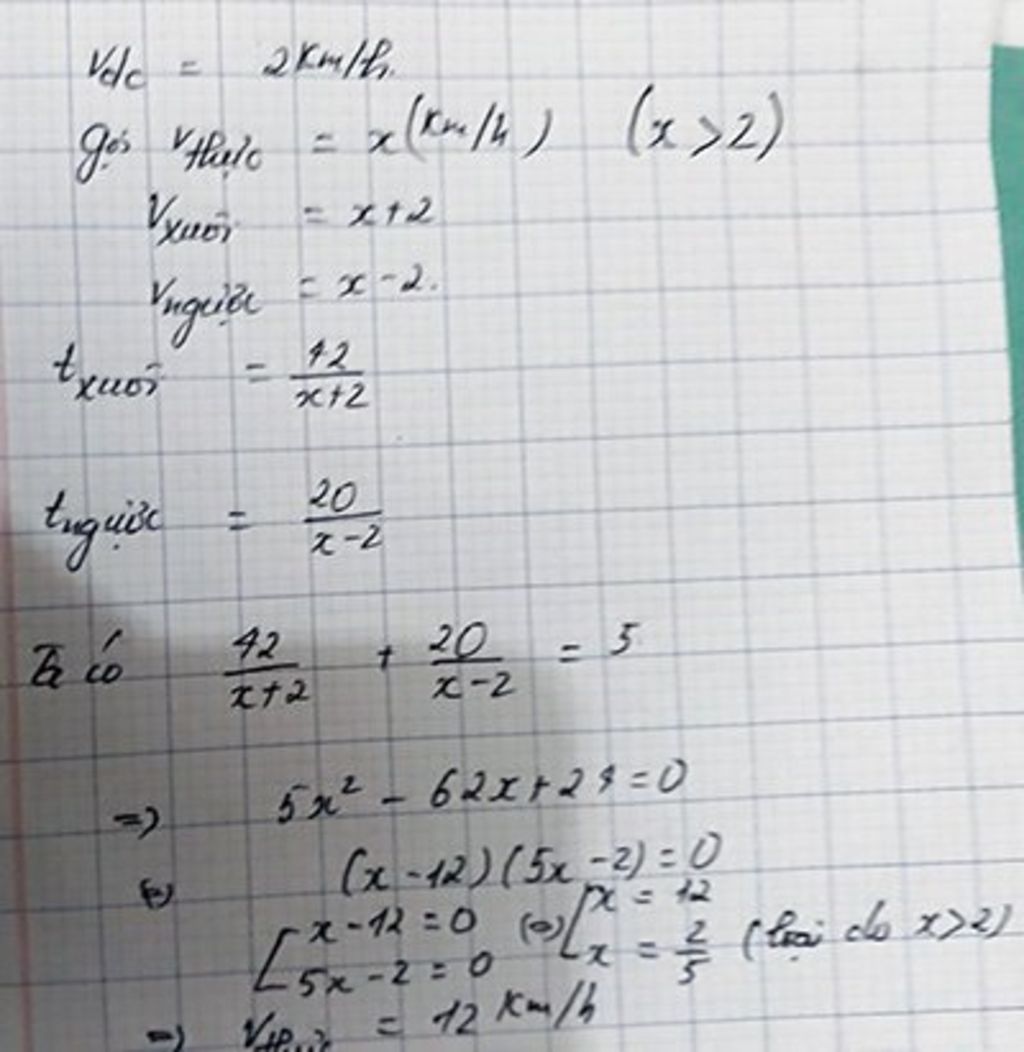 Vdc = 2 Km/h.
gọi Vthực = x (Km/h) (x > 2)
Vxuôi = x+2
Vngược = x - 2.
txuôi = 42/(x+2)
tngược = 20/(x-2)
Ta có 42/(x+2) + 20/(x-2) = 5
=> 5x² - 62x + 24 = 0
(=) (x - 12)(5x - 2) = 0
[x - 12 = 0 (=) [x = 12
[5x - 2 = 0 [x = 2/5 (loại do x > 2)
=> Vthực = 12 Km/h